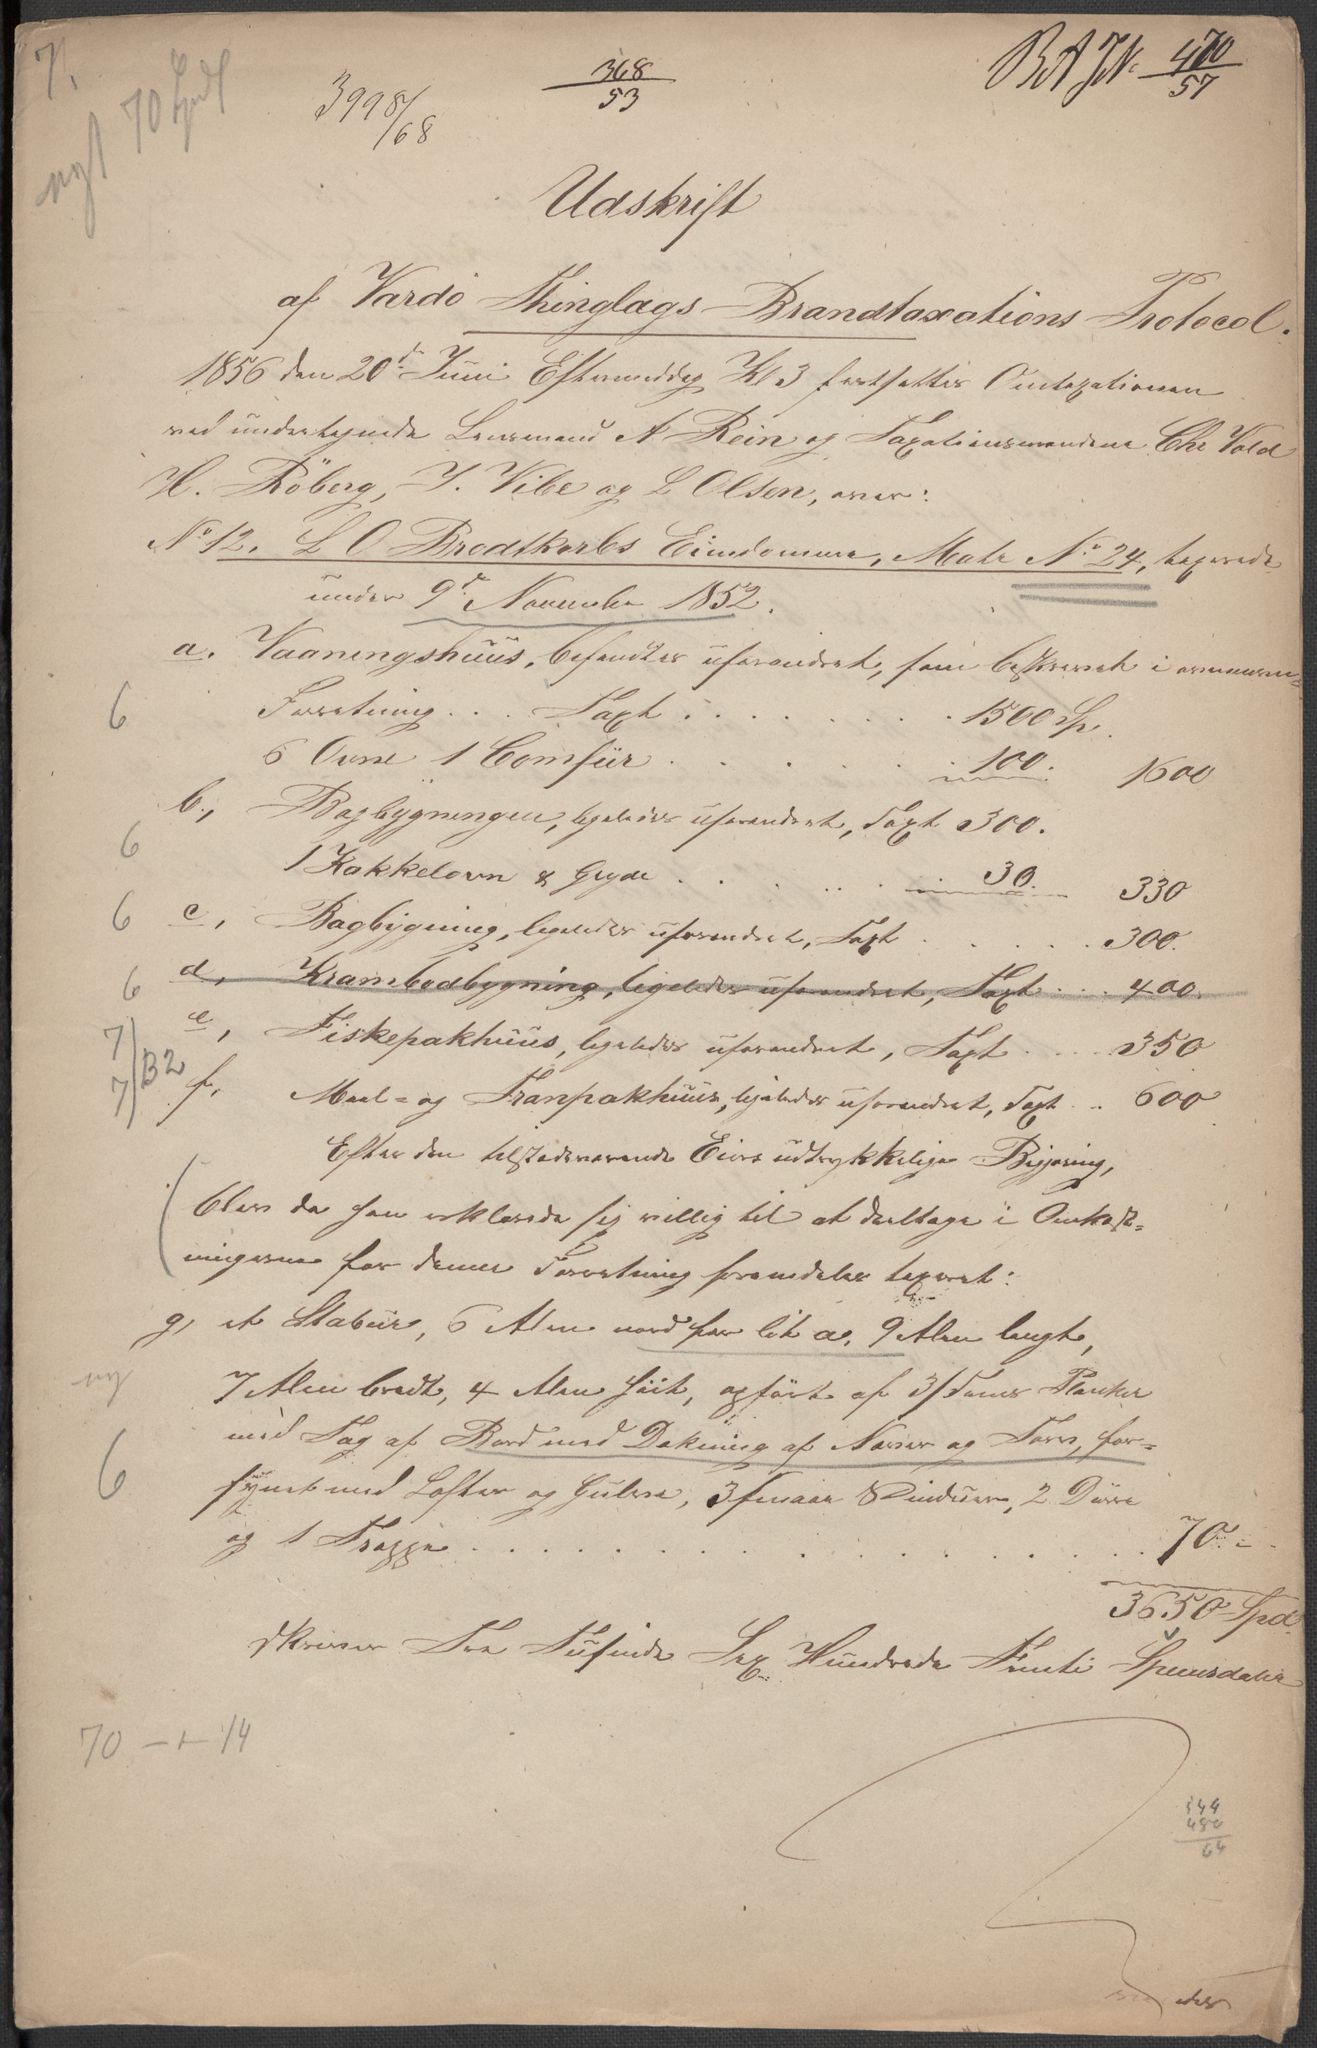 7.
nyt 70 Spdl
3998/68
368
53
B A J.N. 470
57
Udskrift
af Vardö Thinglags Brandtaxations Protocol.
1856 den 20de Juni Eftermiddag Kl 3 fortsattes Omtaxationen
ved undertegnede Lensmand A Rein og Taxationsmændene Chr Vold
H. Röberg, J. Vibe og L Olsen, over:
No 12. L O Brodtkorbs Eiendomme, Matr No 24, taxerede
under 9de November 1852.
a. Vaaningshuus, befandtes uforandret, som beskrevet i ovennævn=
6 Forretning . . . Taxt . . . . . . . . 1500 Sp.
6 Ovne 1 Comfür . . . . . . 100. 1600
b., Bagbygningen, ligeledes uforandret, Taxt 300.
6 1 Kakkelovn & Gryde . . . . . 30. 330
6 c, Bagbygning, ligeledes uforandret, Taxt . . . . . 300.
6 d, Krambodbygning, ligeledes uforandret, Taxt . . . 400.
7 e, Fiskepakhuus, ligeledes uforandret, Taxt . . . . 350
7/B2 f, Meel- og Tranpakhuus, ligeledes uforandret, Taxt . . 600
Efter den tilstedeværende Eiers udtrykkelige Begjæring,
blev da han erklærede sig villig til at deeltage i Omkost-
ningerne for denne Forretning fremdeles taxeret:
g, et Stabür, 6 Alen nord for Lit a, 9 Alen langt,
ny 7 Alen bredt, 4 Alen höit, opfört af 3/ Toms Planker
med Tag af Bord med Dækning af Næver og Törv, for-
6 synet med Lofter og Gulve, 3 smaae Vinduer, 2 Dörre
og 1 Trappe . . . . . . . . . . . . . . 70 "
3650 Spd
skriver Tre Tusinde Sex Hundrede Femti Speciesdaler
70 - + - 14
144
480
64